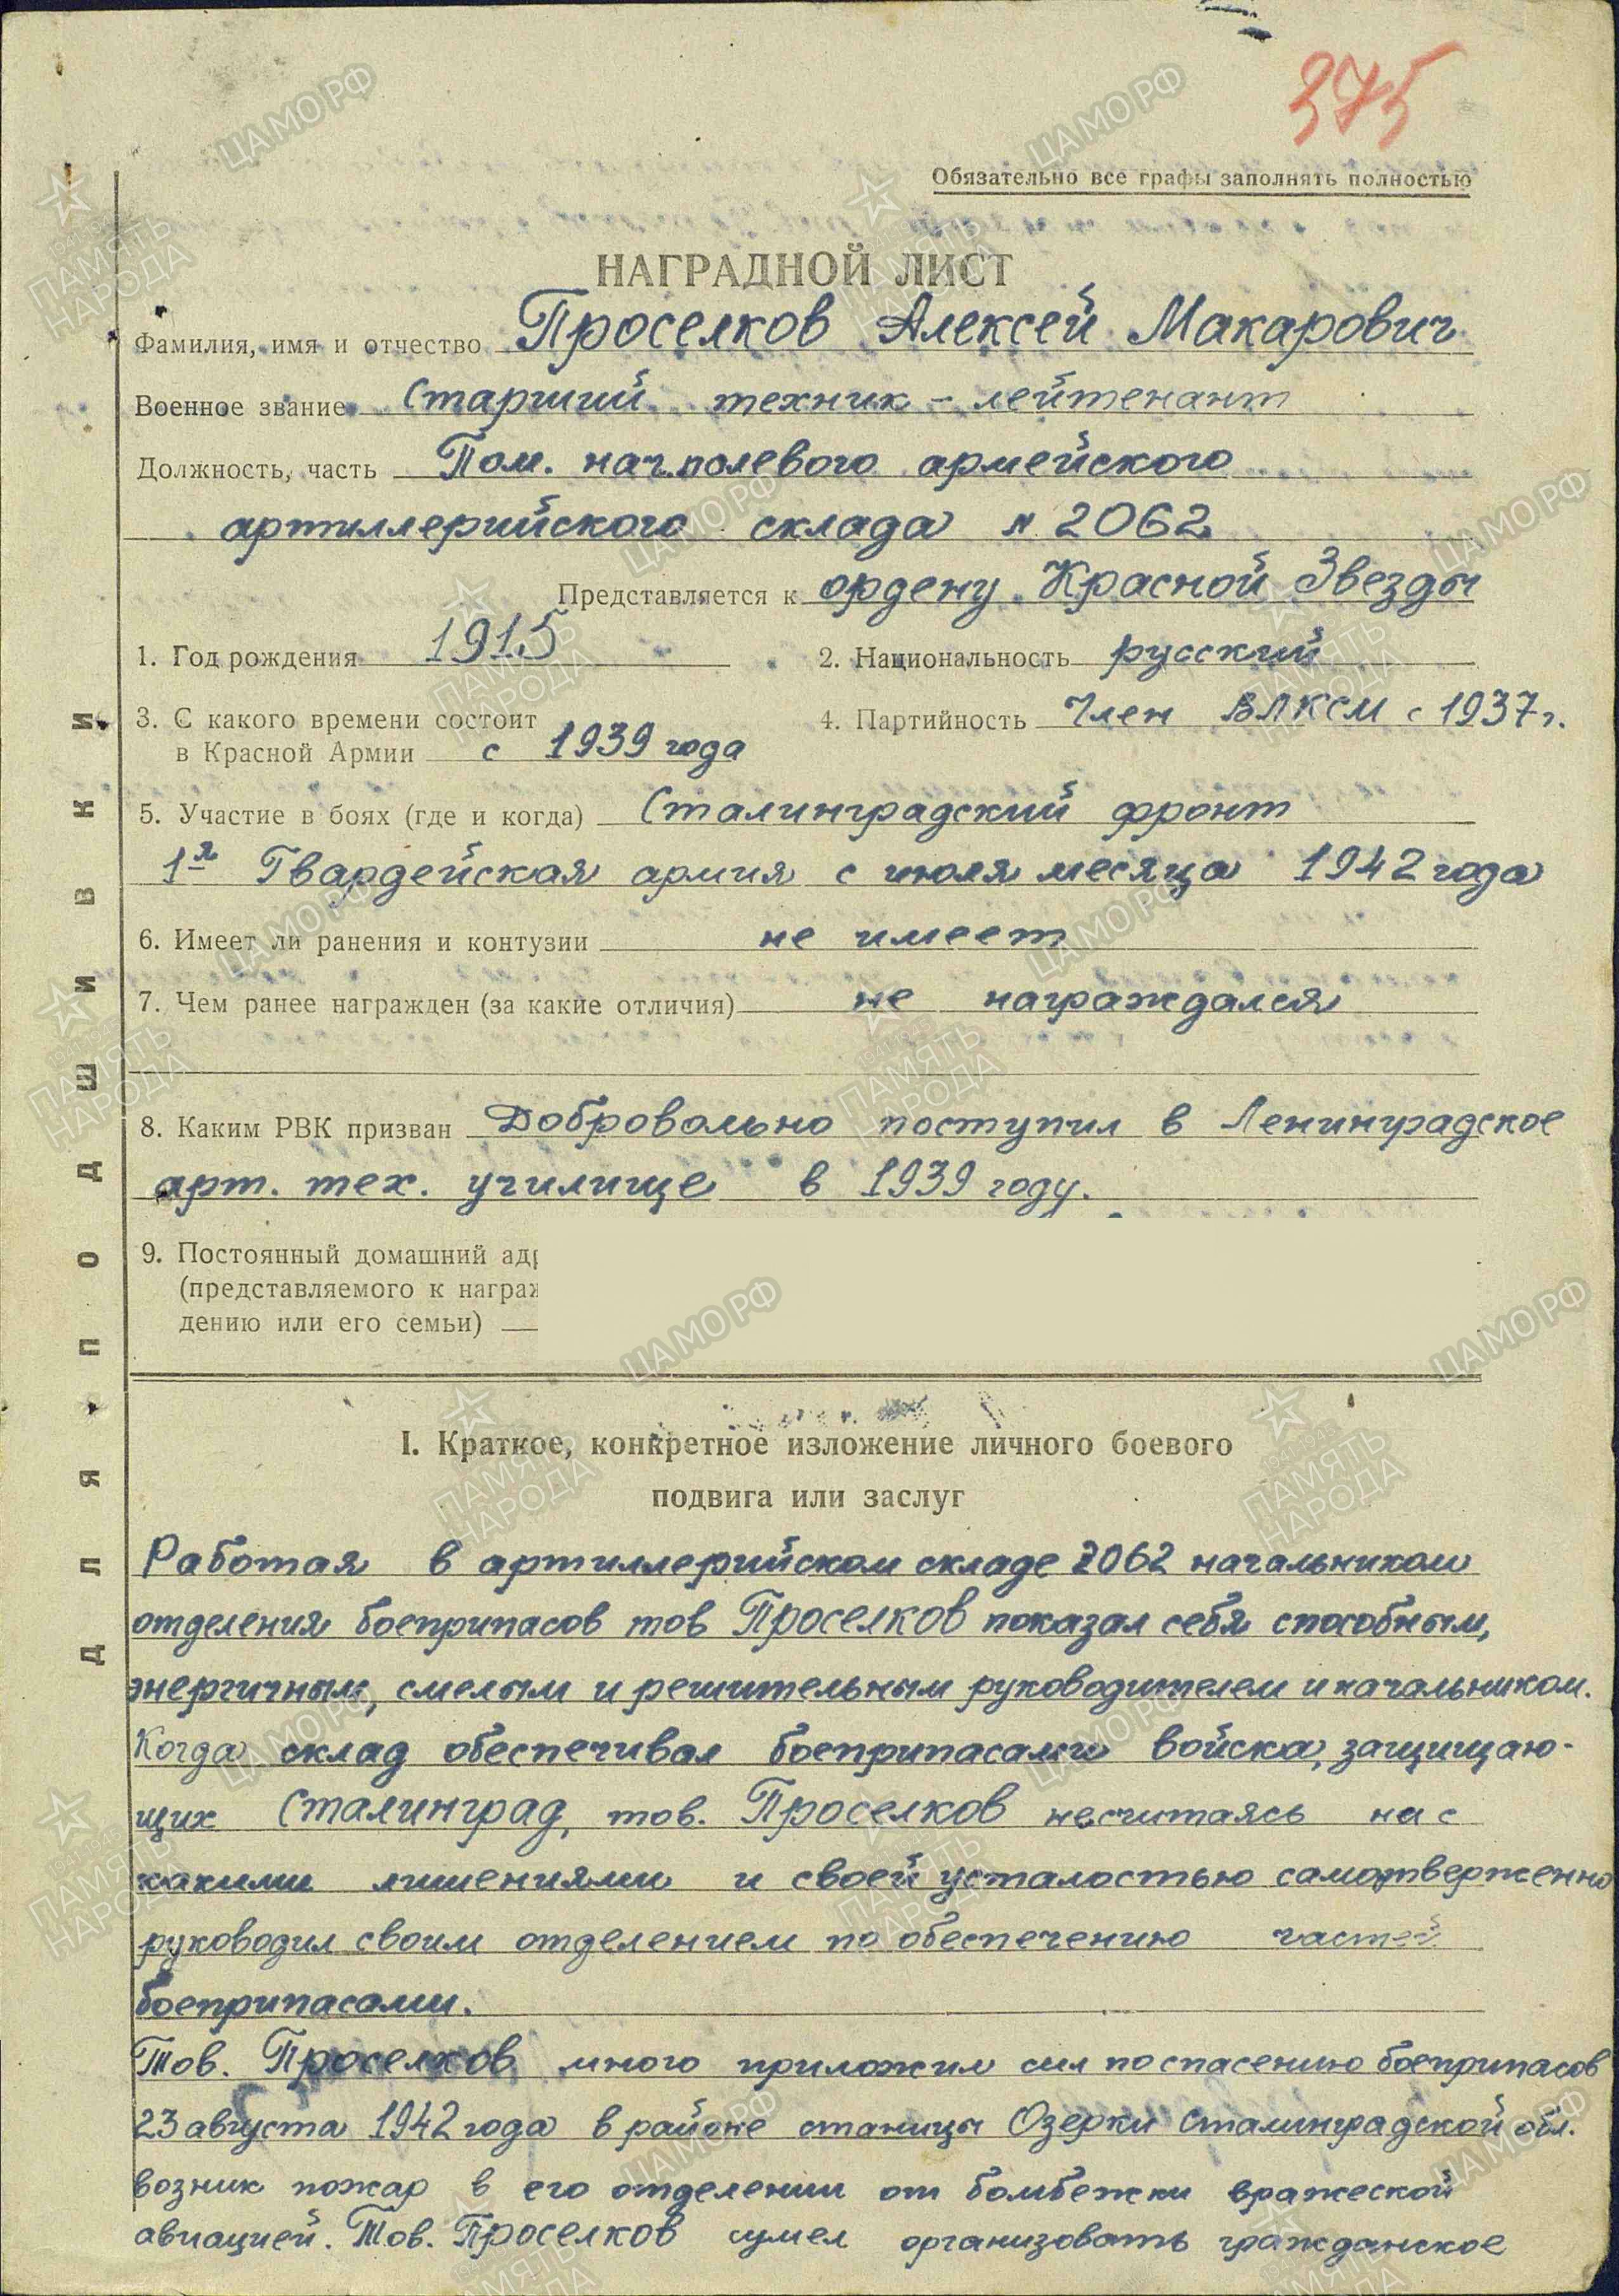 375
Обязательно все графы заполнять полностью
НАГРАДНОЙ ЛИСТ
Фамилия, имя и отчество Проселков Алексей Макарович
Военное звание Старший техник - лейтенант
Должность, часть Пом. нач. полевого армейского
артиллерийского склада № 2062
Представляется к ордену Красной Звезды
1. Год рождения 1915 2. Национальность русский
3. С какого времени состоит
в Красной Армии с 1939 года
4. Партийность Член ВЛКСМ с 1937 г.
5. Участие в боях (где и когда) Сталинградский фронт
1я Гвардейская армия с июля месяца 1942 года
6. Имеет ли ранения и контузии не имеет
7. Чем ранее награжден (за какие отличия) не награждался
8. Каким РВК призван Добровольно поступил в Ленинградское
арт. тех. училище в 1939 году.
9. Постоянный домашний
(представляемого к награж
дению или его семьи)
I. Краткое, конкретное изложение личного боевого
подвига или заслуг
Работая в артиллерийском складе 2062 начальником
отделения боеприпасов тов Проселков показал себя способным,
энергичным, смелым и решительным руководителем и начальником.
Когда склад обеспечивал боеприпасами войска, защищаю-
щих Сталинград, тов. Проселков несчитаясь ни с
какими лишениями и своей усталостью самоотверженно
руководил своим отделением по обеспечению частей
боеприпасами.
Тов. Проселков много приложил сил по спасению боеприпасов
23 августа 1942 года в районе станицы Озерки Сталинградской обл.
возник пожар в его отделении от бомбежки вражеской
авиацией. Тов. Проселков сумел организовать гражданское
ДЛЯ ПОДШИВКИ
ЦАМО.РФ
ПАМЯТЬ НАРОДА